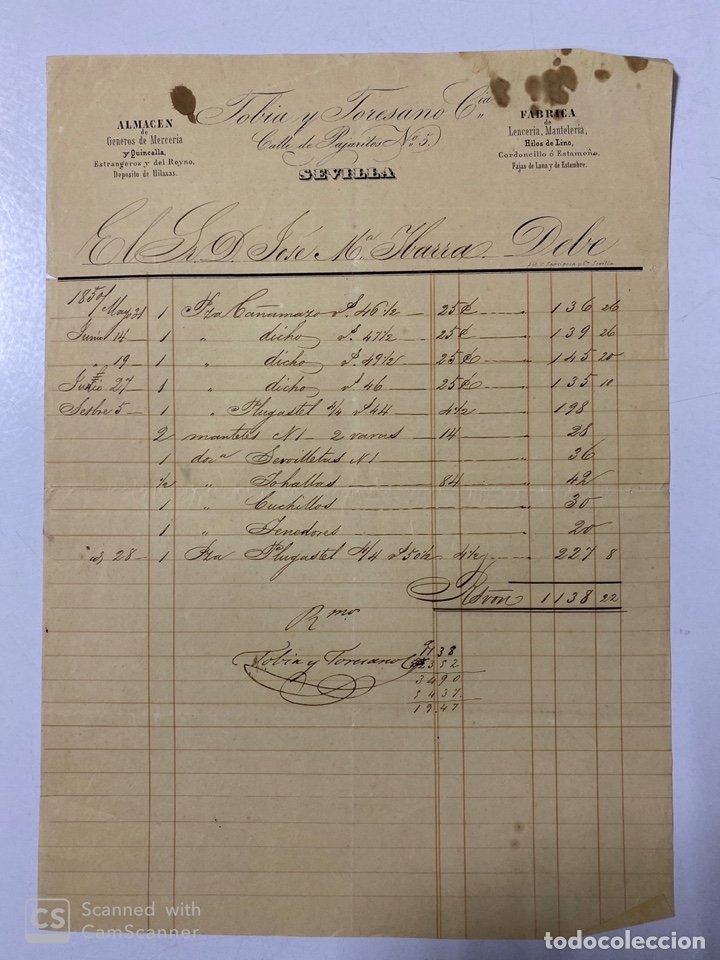 Tobia y Toresano Cia
Calle de Pajaritos No. 5.
SEVILLA
ALMACEN
de
Generos de Merceria
y Quincalla,
Estrangeros y del Reyno,
Deposito de Hilazas.
FABRICA
de
Lenceria, Manteleria,
Hilos de Lino,
Cordoncillo ó Estameña.
Fajas de Lana y de Estambre.
El Sr. D. José Ma. Ibarra. Debe
1850
Mayo 31 1 Pza Cañamazo vs. 46 1/2 25 c 136 26
Junio 14 1 " dicho vs. 47 1/2 25 c " 139 26
" 19 1 " dicho vs. 49 1/2 25 c " 145 20
27 1 " dicho vs. 46 25 c " 135 10
Setbre 5 1 " Plugastel 4/4 vs. 44 4 1/2 " 198
2 manteles N 1 2 varas 14 " 28
1 doca Servilletas N 1 " 36
1/2 " Tohallas 84 " 42
1 " Cuchillos " 30
1 " Tenedores " 20
id, 28 1 Pza Plugastel 4/4 vs. 50 1/2 4 1/2 " 227 8
Rsvon 1138 22
Rmo.
Tobia y Toresano Ca
1138
2352
3490
5437
1947
CS Scanned with
CamScanner
todocoleccion